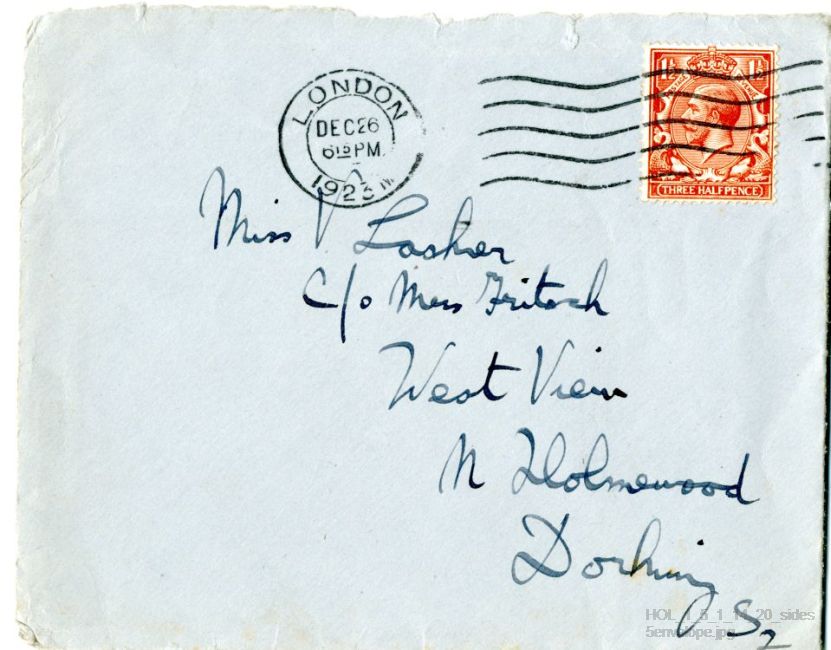 LONDON
DEC 26
6 15 PM
1923
1½ 1½
POSTAGE REVENUE
THREE HALFPENCE
Miss V. Lasker
C/o Mrs Fritsch
West View
N Holmewood
Dorking
HOL_1_5_1_14_20_sides
5envelope.jpg